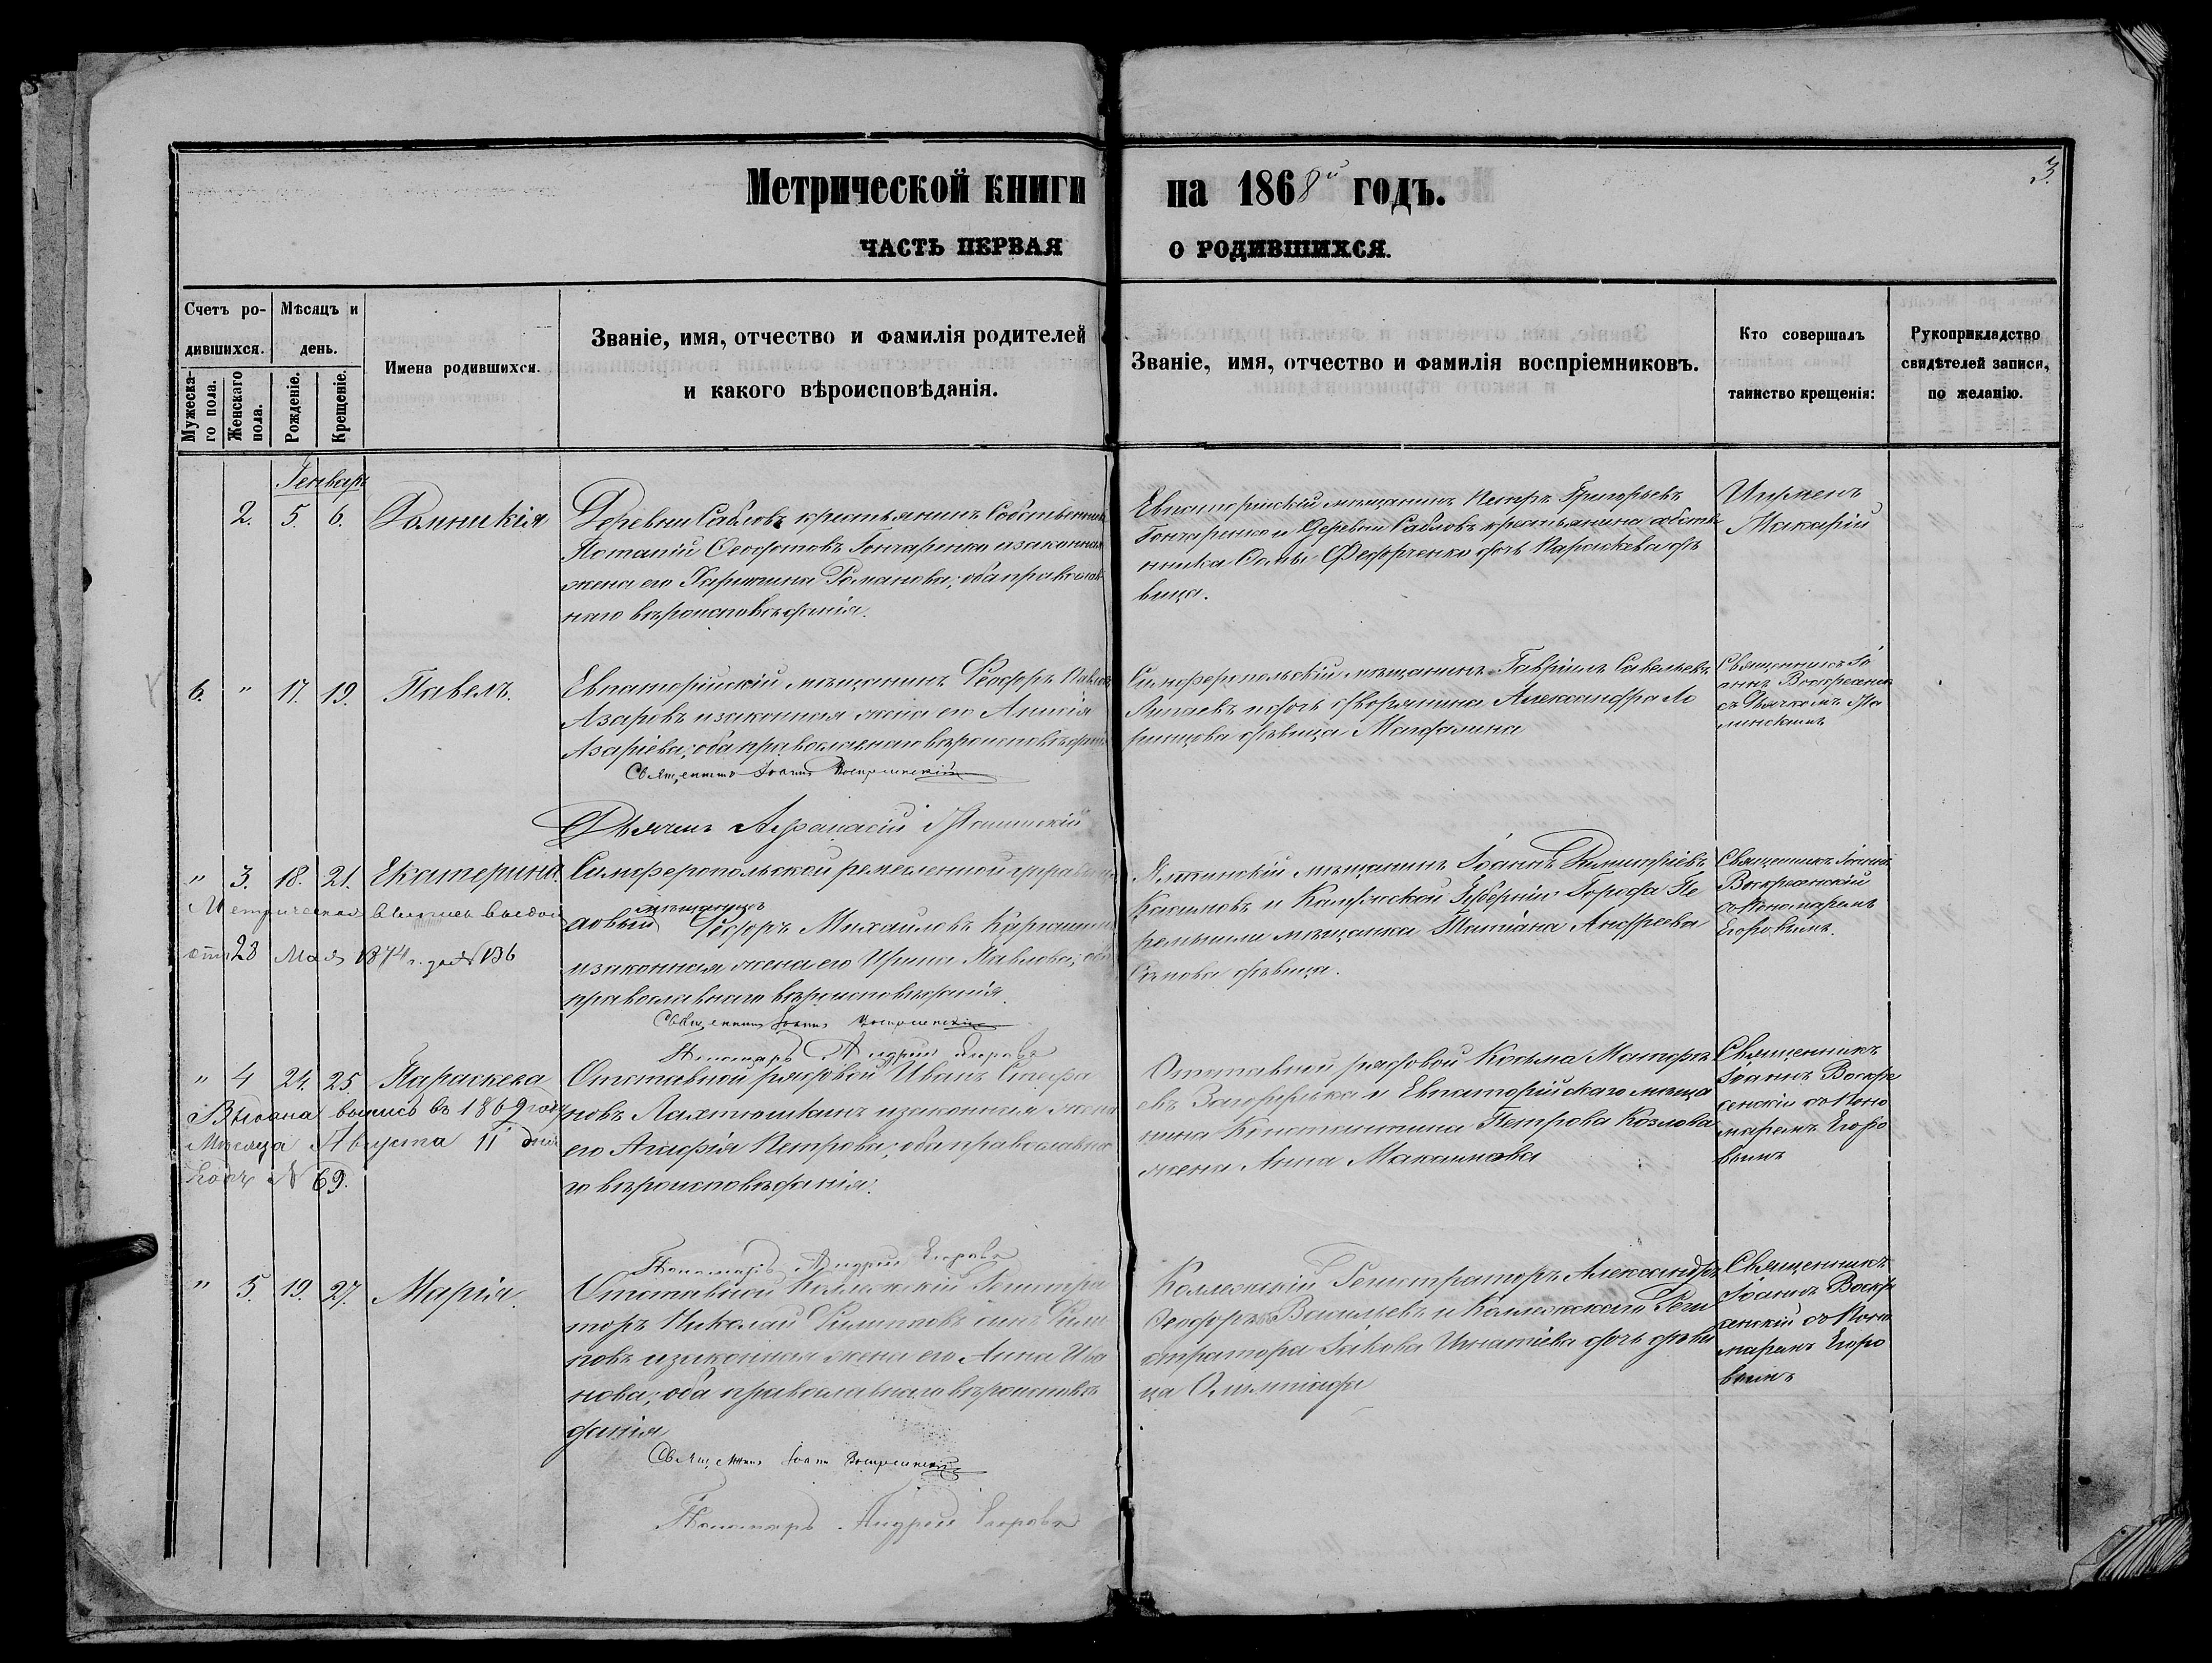 Метрической книги на 1868й годъ.
3.
ЧАСТЬ ПЕРВАЯ О РОДИВШИХСЯ.
Счетъ ро-
дившихся.
Мужеска-
го пола.
Женскаго
пола.
Мѣсяцъ и
день.
Рожденіе.
Крещеніе.
Имена родившихся.
Званіе, имя, отчество и фамилія родителей
и какого вѣроисповѣданія.
Званіе, имя, отчество и фамилія воспріемниковъ.
Кто совершалъ
таинство крещенія:
Рукоприкладство
свидѣтелей записи,
по желанію.
Генварь
2. 5. 6. Домникія
Деревни Сабловъ крестьянинъ Собственникъ
Потапій Гончаренко и законная
жена его Харитина Романова; оба православ
наго вѣроисповѣданія.
Евпаторійскій мѣщанинъ Петръ Григорьевъ
Гончаренко и Деревни Сабловъ крестьянина собств
енника Ѳомы Федорченки дочь Параскева дѣ
вица.
Игуменъ
Макарій
6. " 17. 19. Павелъ.
Евпаторійскій мѣщанинъ Ѳеодоръ Павловъ
Азаровъ и законная жена его Анисія
Азаріева; оба православнаго вѣроисповѣданія
Священникъ Іоаннъ Воскресенскій
Дьячекъ Афанасій
Симферопольскій мѣщанинъ Гавріилъ Савельевъ
и дочь дворянина Александра
дѣвица Магдалина
Священникъ Іо
аннъ Воскресенск
съ Дьячкомъ
" 3. 18. 21. Екатерина.
Метрическая выпись выдана
23 Мая 1874 г. за № 136
Симферопольской ремесленной управы
мѣщанинъ Ѳеодоръ Михаиловъ
и законная жена его Ирина Павлова; оба
православнаго вѣроисповѣданія.
Священникъ Іоаннъ Воскресенскій
Пономарь Андрей Егоровъ
мѣщанинъ Іоаннъ Димитріевъ
и Калужской Губерніи Города Пе
ремышля мѣщанка Татіана Андреева
дѣвица.
Священникъ Іоаннъ
Воскресенскій
съ Пономаремъ
Егоровымъ.
" 4 24. 25. Параскева
Выдана выпись въ 1869 году
Мѣсяца Августа 11 дня
№ 69.
Отставной рядовой Иванъ Стефа
новъ Лахтюшкинъ и законная жена
его Агафія Петрова; оба православна
го вѣроисповѣданія.
Пономарь Андрей Егоровъ
Отставной рядовой Косьма Матѳѣ
евъ и Евпаторійскаго мѣща
нина Константина Петрова Козлова
жена Анна Максимова
Священникъ
Іоаннъ Воскре
сенскій съ Поно
маремъ Егоро
вымъ
" 5. 19. 27. Марія.
Отставной Коллежскій Регистра
торъ Николай Филипповъ сынъ
новъ и законная жена его Анна Ива
нова; оба православнаго вѣроисповѣ
данія
Священникъ Іоаннъ Воскресенскій
Пономарь Андрей Егоровъ
Коллежскій Регистраторъ Александръ
Ѳеодоровъ Васильевъ и Коллежскаго Реги
стратора Іакова Игнатіева дочь дѣви
ца Олимпіада
Священникъ
Іоаннъ Воскре
сенскій съ Поно
маремъ Егоро
вымъ